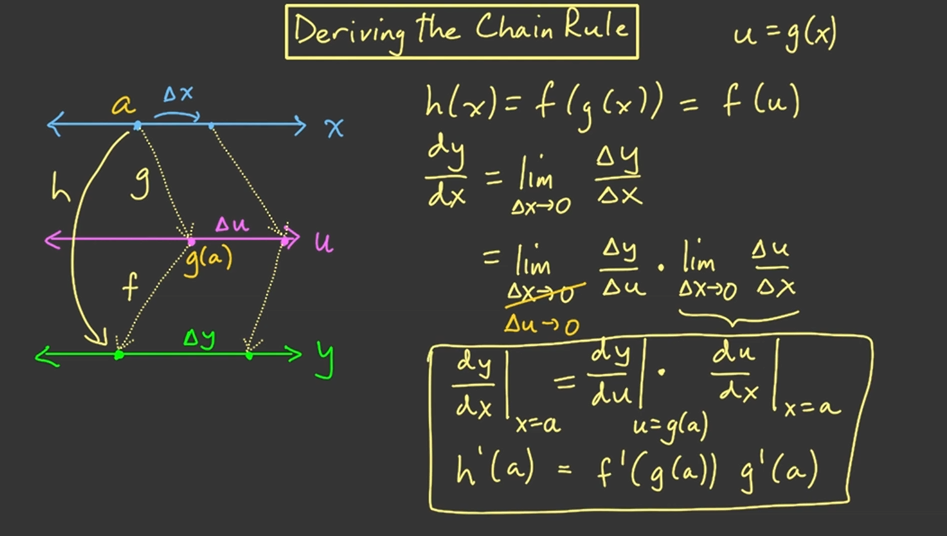 Deriving the Chain Rule
u = g(x)
a
Δx
x
h
g
Δu
u
g(a)
f
Δy
y
h(x) = f(g(x)) = f(u)
dy/dx = lim Δx→0 Δy/Δx
= lim Δx→0 Δu→0 Δy/Δu · lim Δx→0 Δu/Δx
dy/dx | x=a = dy/du | u=g(a) · du/dx | x=a
h'(a) = f'(g(a)) g'(a)